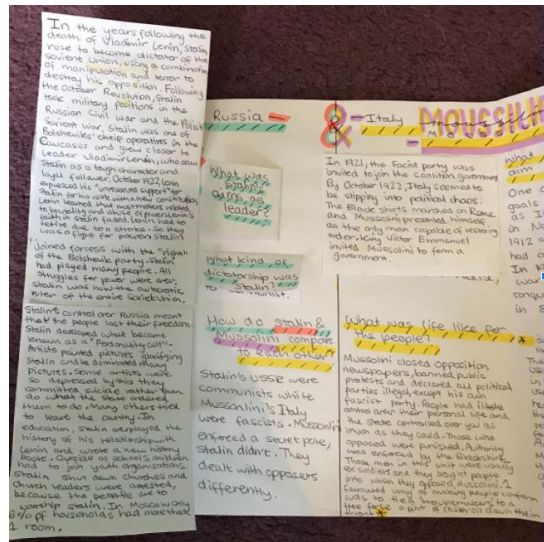 In the years following the
death of Vladimir Lenin, Stalin
rose to become dictator of the
Soviet Union, using a combination
of manipulation and terror to
destroy his opposition. Following
the October Revolution, Stalin
took military positions in the
Russian Civil War and the Polish
Soviet War. Stalin was one of
Bolsheviks' chief operatives in the
Caucasus and grew closer to
leader Vladimir Lenin, who saw
Stalin as a tough character and
loyal follower. October 1922 Lenin
expressed his "unreserved support" for
Stalin for his work with a new constitution.
faith in Stalin faded. Lenin had to
retire due to a stroke. So they
was a fight for power. Stalin
joined forces with the "right"
of the Bolshevik party. Stalin
had played many people. All
struggles for power were over,
Stalin was now the autocratic
ruler of the entire Soviet union.
Stalin's control over Russia meant
that the people lost their freedom.
Stalin developed what became
known as a "Personality cult".
Artists painted pictures glorifying
Stalin and he dominated many
pictures. Some artists were
so depressed by this they
committed suicide rather than
do what the state ordered
them to do. Many others tried
to leave the country. In
education, Stalin
history of his relationship with
Lenin and wrote a new history
book. Outside of school children
had to join youth organisations.
Stalin shut down churches and
Church leaders were arrested,
because the people are to
worship Stalin. In Moscow only
6% of households had more than
1 room.
Russia -
What was
Stalin's
aims as
leader?
What kind of
dictatorship was
Stalin?
How do Stalin &
Mussolini compare
to each other?
Stalin's USSR were
communists while
Mussonlini's Italy
were fascists. Mussolini
enforced a secret police,
Stalin didn't. They
dealt with opposers
differently.
& - Italy
MOUSSILIN
In 1921, the Facist party was
invited to join the coalition government
By October 1922, Italy seemed to
be slipping into political chaos.
The Black Shirts marched on Rome
and Mussolini presented himself
as the only man capable of restoring
order. King Victor Emmanuel
invited Mussolini to form a
government.
What was life like for
the people?
Mussolini closed opposition
newspapers, banned public
protests and declared all political
parties illegal, except his own
fascist party. People had little
control over their personal life and
the state controlled over you as
much as they could. Those who
opposed were punished. Authority
was enforced by the Blackshirts.
Those men in this unit were usually
ex soldiers and they
when they opposed Mussolini. 1
favoured way of making people conform
was to tie 'troublemakers' to a
tree force a pint of castor oil down their
throat
What
aim
One
goals
as I
in No
1912 a
had
In
was
in S